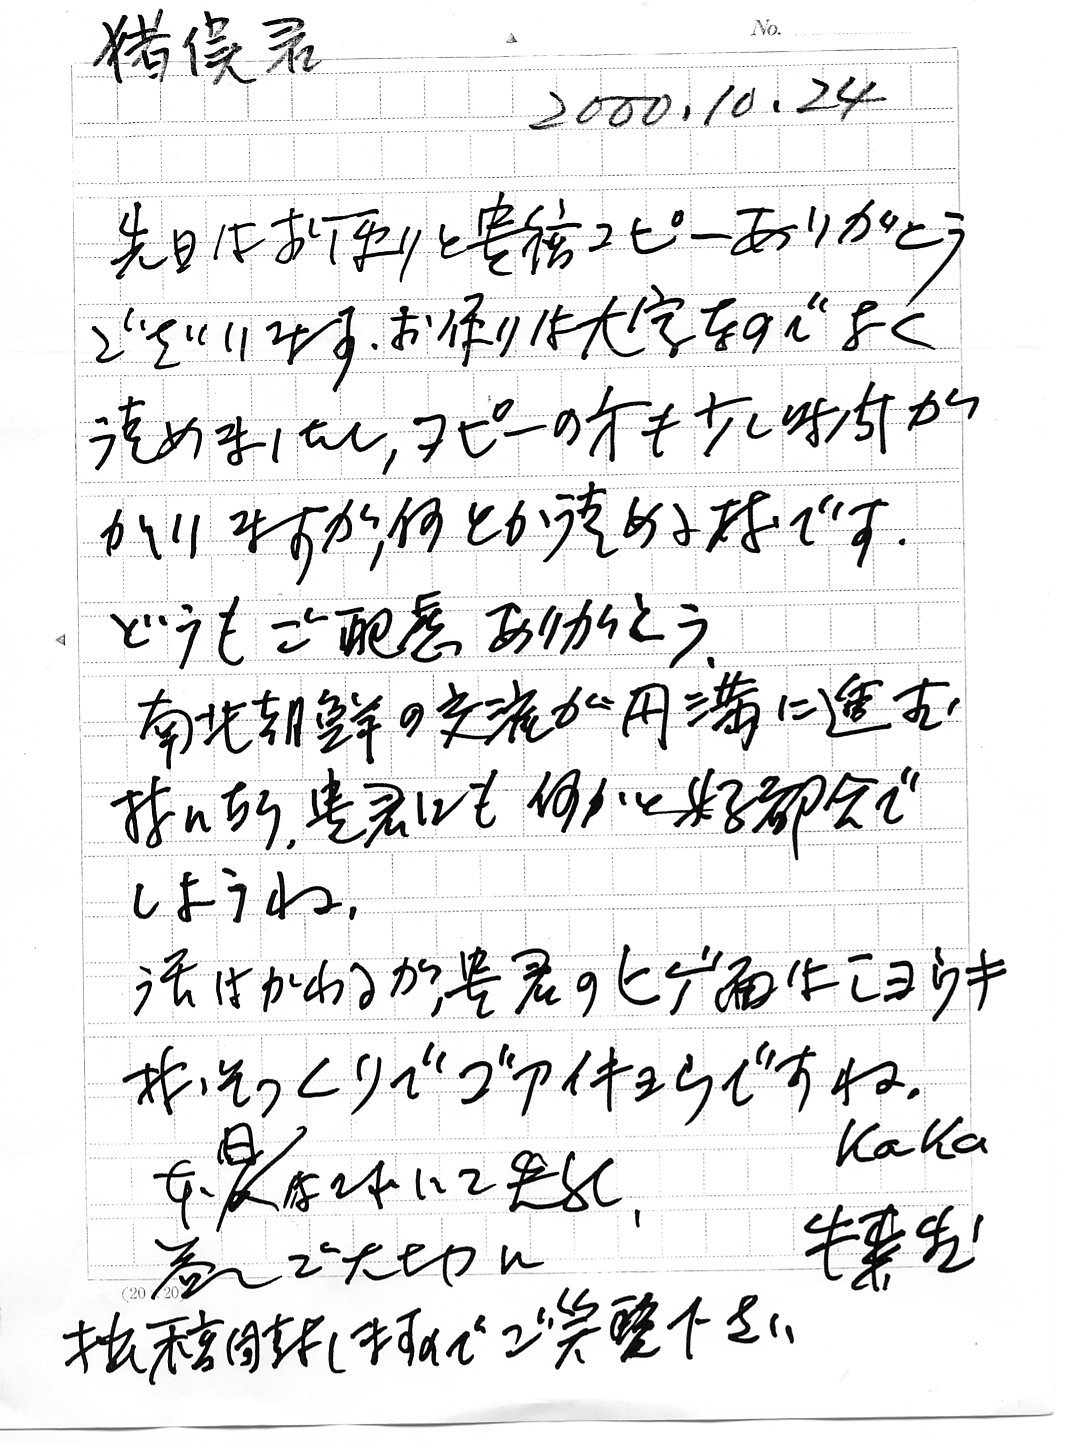 No.
猪俣君
2000.10.24
先日はお便りと貴稿コピーありがとう
ございます.お便りは大字なのでよく
読めましたし,コピーの方も少し時間が
かかりますが,何とか読める様です.
どうもご配慮ありがとう.
南北朝鮮の交流が円満に進む
様になり,貴君にも何かと好都合で
しようね.
話はかわるが,貴君のヒゲ面は
そっくりでゴアイキョウですね.
KaKa
本日は
ご大切に
(20 20
拙稿同封しますのでご笑覧下さい